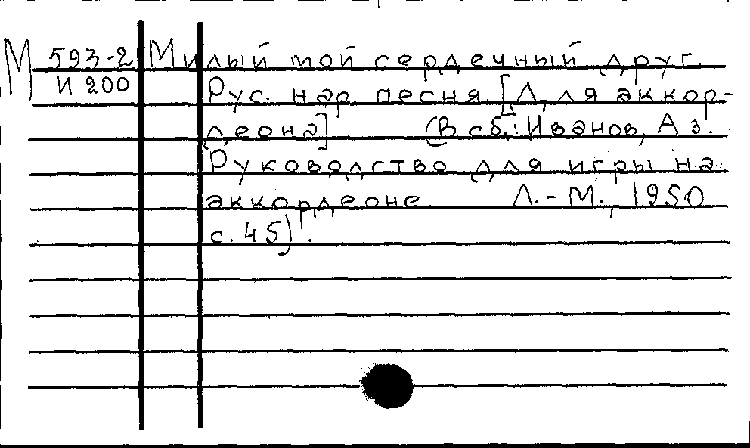 М 593-2 Милый мой сердечный друг.
И 200 Рус. нар. песня [Для аккор-
деона] (В сб.: Иванов, Аз.
Руководство для игры на
аккордеоне. Л.-М., 1950
с. 45).